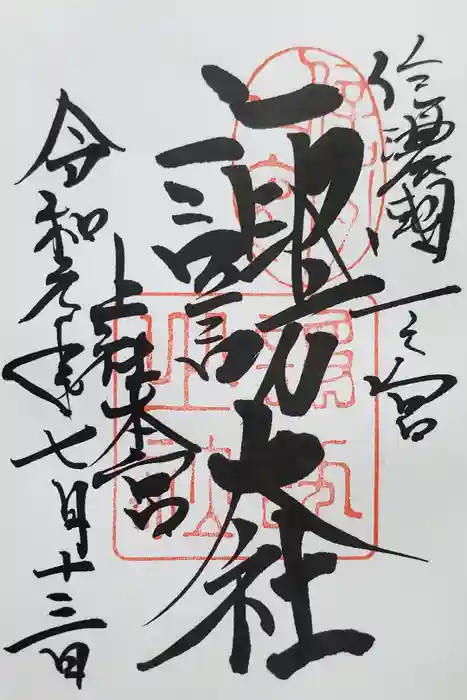 信濃國一之宮
諏訪大社
上社本宮
令和元年七月十三日